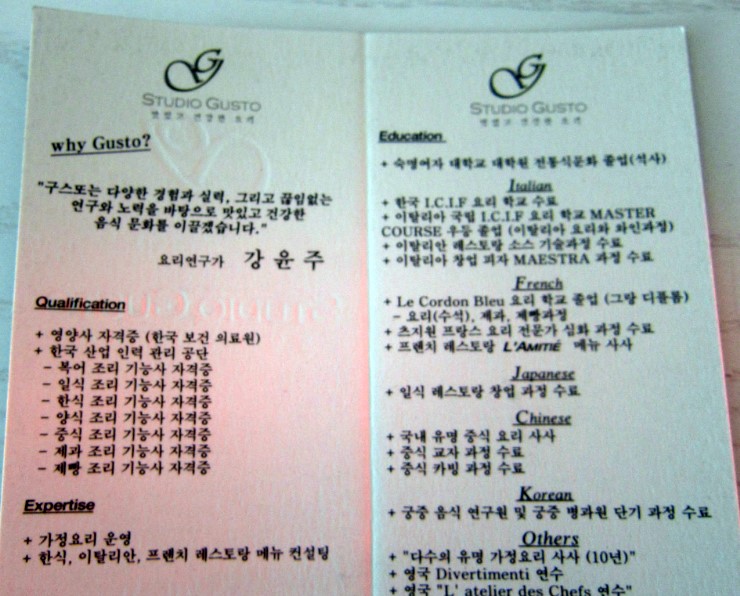 STUDIO GUSTO
맛있고 건강한 요리
why Gusto?
"구스또는 다양한 경험과 실력, 그리고 끊임없는
연구와 노력을 바탕으로 맛있고 건강한
음식 문화를 이끌겠습니다."
요리연구가 강 윤 주
Qualification
+ 영양사 자격증 (한국 보건 의료원)
+ 한국 산업 인력 관리 공단
- 복어 조리 기능사 자격증
- 일식 조리 기능사 자격증
- 한식 조리 기능사 자격증
- 양식 조리 기능사 자격증
- 중식 조리 기능사 자격증
- 제과 조리 기능사 자격증
- 제빵 조리 기능사 자격증
Expertise
+ 가정요리 운영
+ 한식, 이탈리안, 프랜치 레스토랑 메뉴 컨설팅
STUDIO GUSTO
맛있고 건강한 요리
Education
+ 숙명여자 대학교 대학원 전통식문화 졸업(석사)
Italian
+ 한국 I.C.I.F 요리 학교 수료
+ 이탈리아 국립 I.C.I.F 요리 학교 MASTER
COURSE 우등 졸업 (이탈리아 요리와 와인과정)
+ 이탈리안 레스토랑 소스 기술과정 수료
+ 이탈리아 창업 피자 MAESTRA 과정 수료
French
+ Le Cordon Bleu 요리 학교 졸업 (그랑 디플롬)
- 요리(수석), 제과, 제빵과정
+ 츠지원 프랑스 요리 전문가 심화 과정 수료
+ 프랜치 레스토랑 L'AMITIÉ 메뉴 사사
Japanese
+ 일식 레스토랑 창업 과정 수료
Chinese
+ 국내 유명 중식 요리 사사
+ 중식 교자 과정 수료
+ 중식 카빙 과정 수료
Korean
+ 궁중 음식 연구원 및 궁중 병과원 단기 과정 수료
Others
+ "다수의 유명 가정요리 사사 (10년)"
+ 영국 Divertimenti 연수
+ 영국 "L' atelier des Chefs 연수"